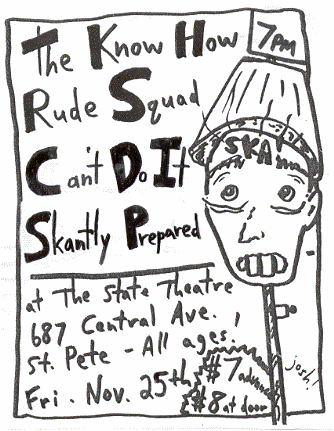 The Know How
7pm
Rude Squad
Can't Do It
SKA
Skantly Prepared
at The State Theatre
687 Central Ave.
St. Pete - All ages!
Fri. Nov. 25th
#7 advance
#8 at door
josh!